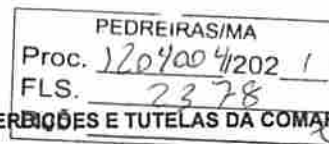 PEDREIRAS/MA
Proc. 1204004/202 1
FLS. 2378
ERDIÇÕES E TUTELAS DA COMAR